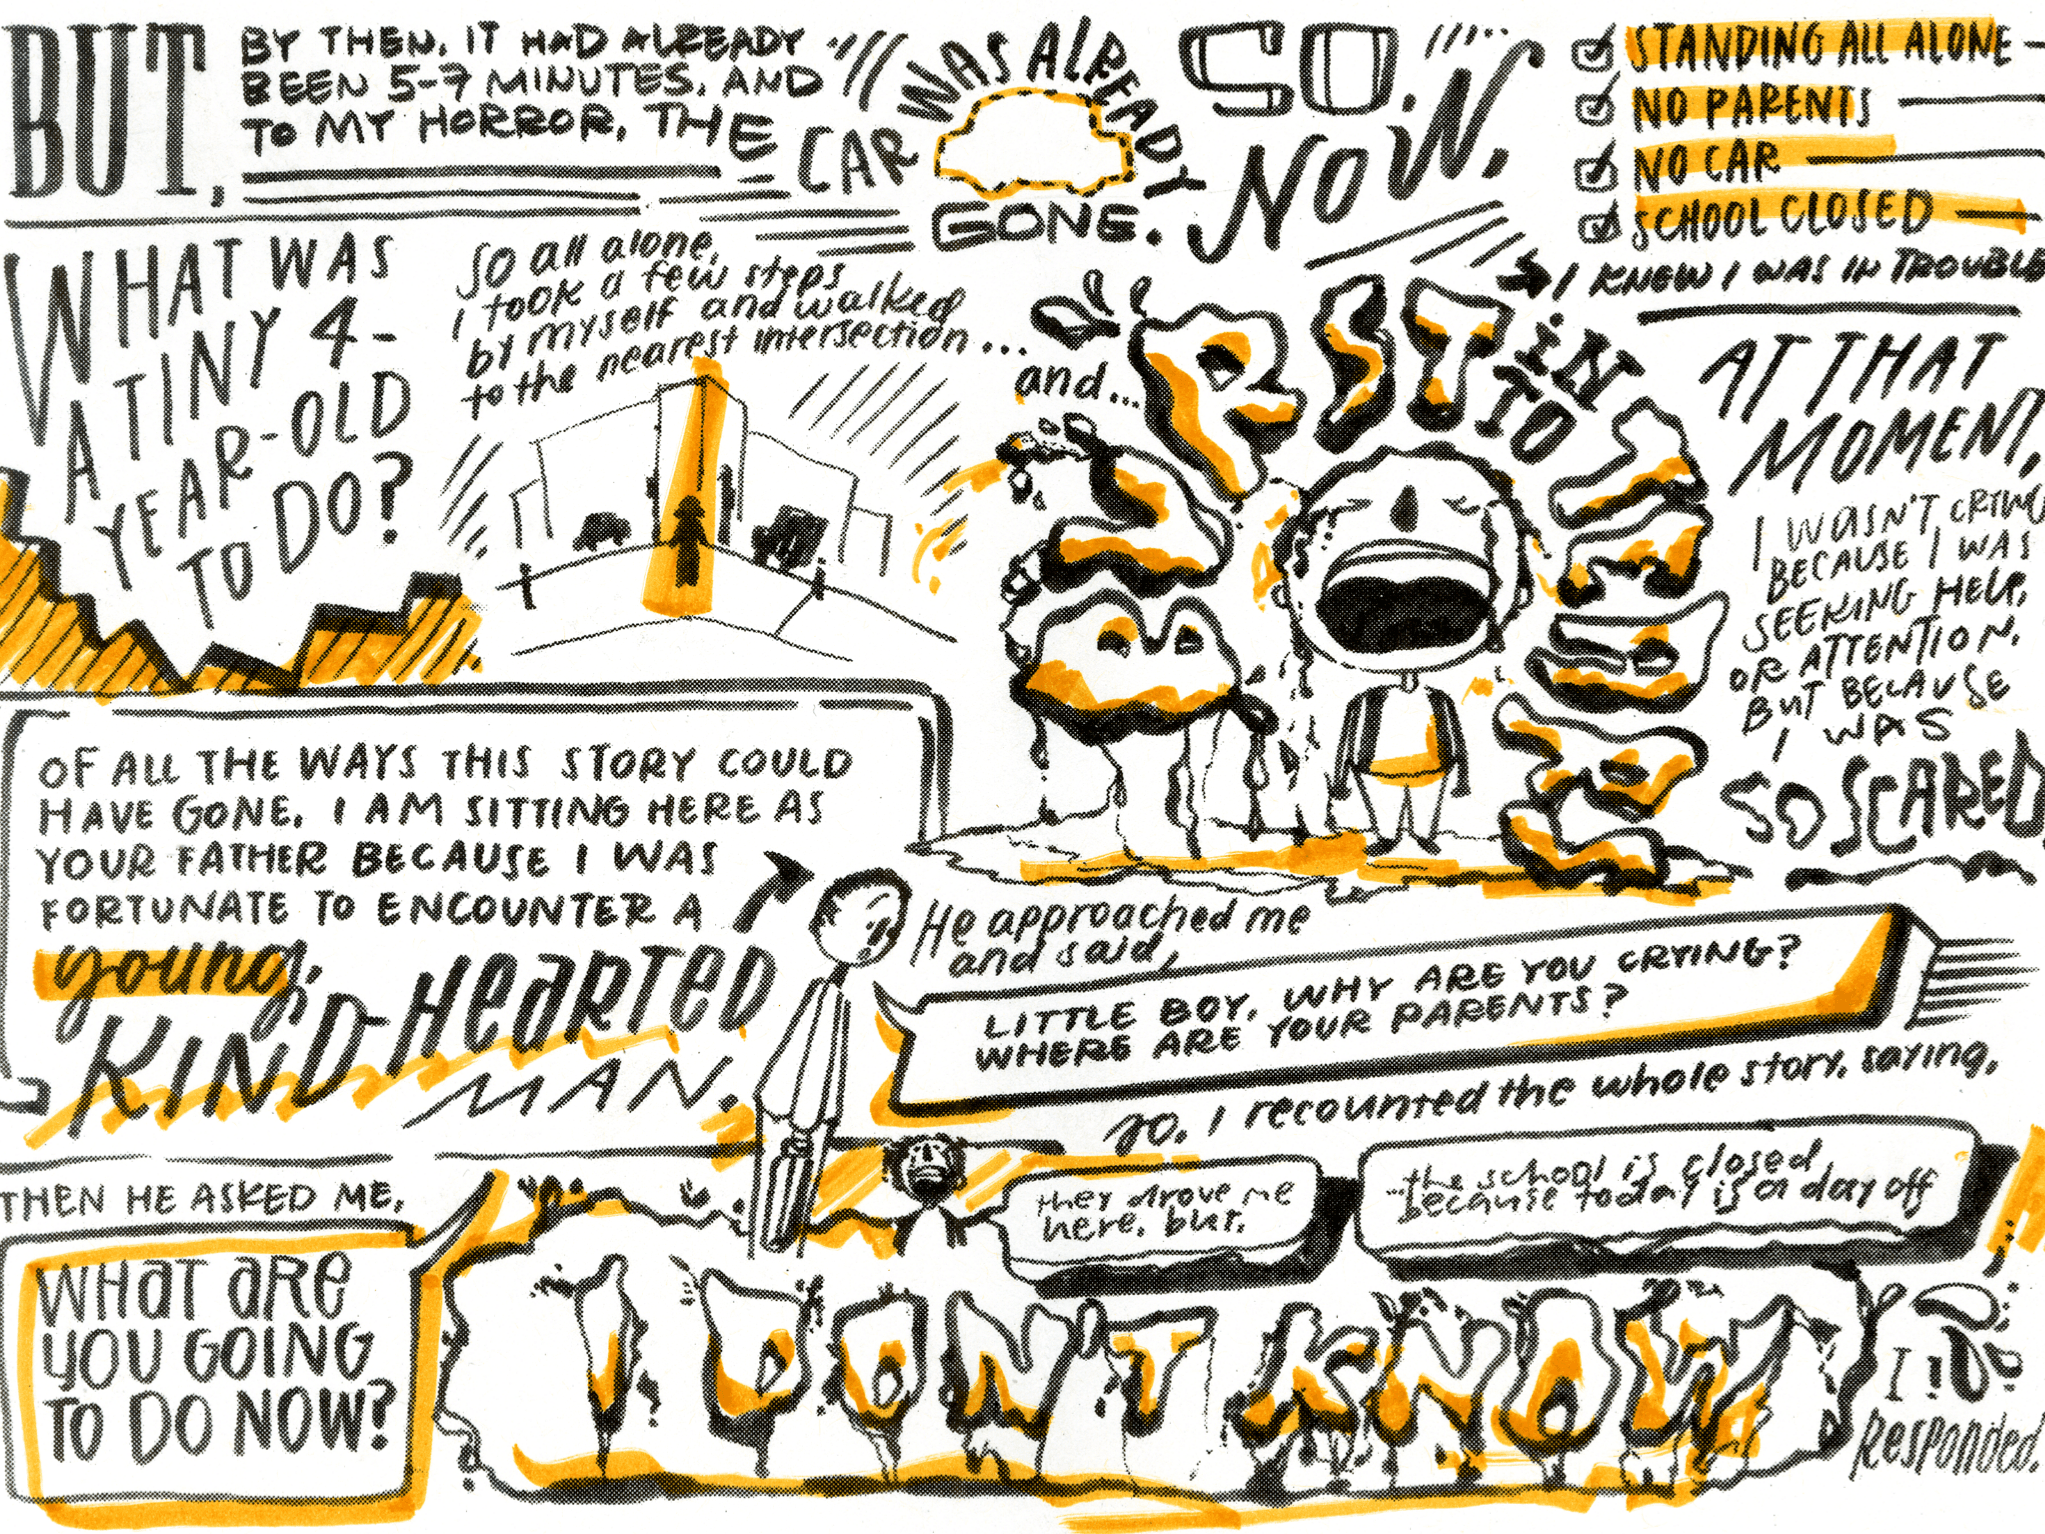 BUT,
BY THEN, IT HAD ALREADY
BEEN 5-7 MINUTES, AND
TO MY HORROR, THE
CAR WAS ALREADY
GONE.
SO,
NOW,
STANDING ALL ALONE
NO PARENTS
NO CAR
SCHOOL CLOSED
I KNEW I WAS IN TROUBLE
WHAT WAS
A TINY 4-
YEAR-OLD
TO DO?
So all alone,
I took a few steps
by myself and walked
to the nearest intersection...
and...
BURST
iN
TO
TEARS
AT THAT
MOMENT,
I WASN'T CRYING
BECAUSE I WAS
SEEKING HELP,
OR ATTENTION,
BUT BECAUSE
I WAS
SO SCARED
OF ALL THE WAYS THIS STORY COULD
HAVE GONE, I AM SITTING HERE AS
YOUR FATHER BECAUSE I WAS
FORTUNATE TO ENCOUNTER A
young,
KIND-HEARTED
MAN.
He approached me
and said,
LITTLE BOY, WHY ARE YOU CRYING?
WHERE ARE YOUR PARENTS?
So, I recounted the whole story, saying,
they drove me
here, but,
...the school is closed
because today is a day off
THEN HE ASKED ME,
WHAT ARE
YOU GOING
TO DO NOW?
I DON'T KNOW
I
Responded.